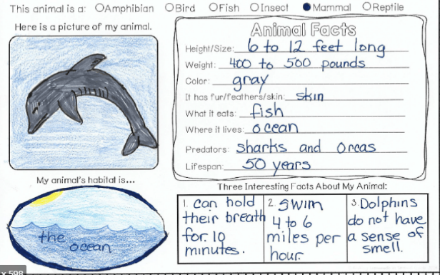 This animal is a: Amphibian Bird Fish Insect Mammal Reptile
Here is a picture of my animal.
Animal Facts
Height/Size: 6 to 12 feet long
Weight: 400 to 500 pounds
Color: gray
It has fur/feathers/skin: skin
What it eats: fish
Where it lives: ocean
Predators: sharks and orcas
Lifespan: 50 years
My animal's habitat is...
the
ocean
Three Interesting Facts About My Animal:
1. can hold
their breath
for 10
minutes.
2. swim
4 to 6
miles per
hour
3. Dolphins
do not have
a sense of
smell.
x 598